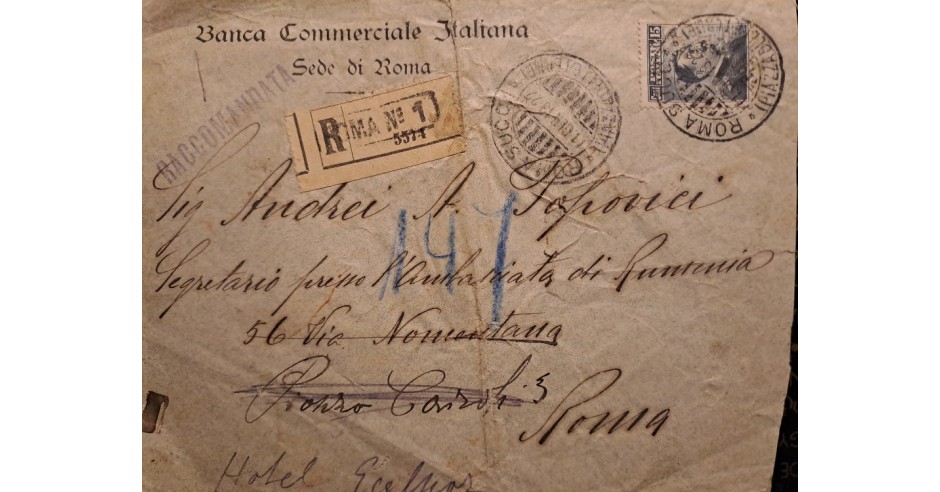 Banca Commerciale Italiana
Sede di Roma
RACCOMANDATA
R ROMA Nº 1
5574
ROMA SUCC
Sig Andrei A. Popovici
147
Segretario presso l'Ambasciata di Rumenia
56 Via Nomentana
Cairoli 3
Roma
Hotel